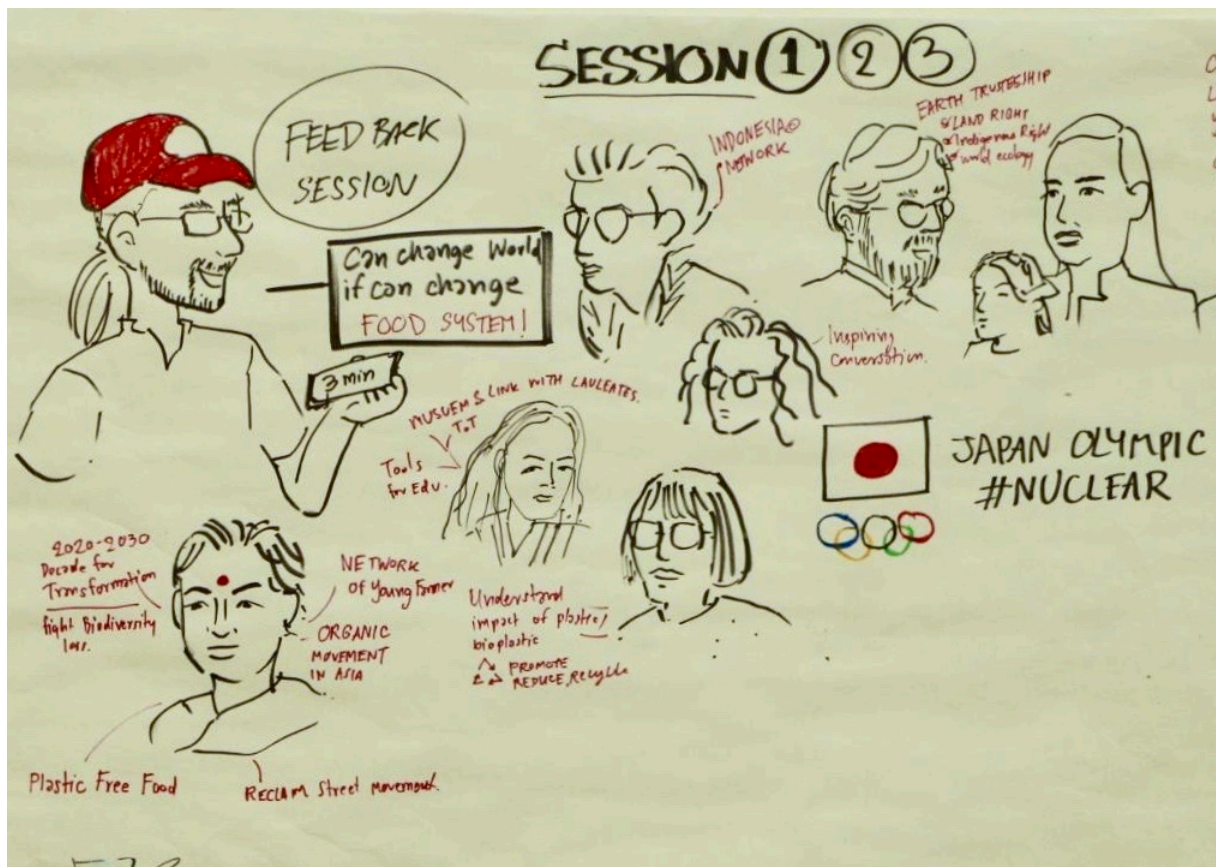 SESSION 1 2 3
FEED BACK
SESSION
Can change World
if can change
FOOD SYSTEM!
3 min
INDONESIA
NETWORK
EARTH TRUSTESHIP
LAND RIGHT
Indigenous Right
world ecology
Inspiring
Conversation.
MUSUEM & LINK WITH LAULEATES.
ToT
Tools
for Edu.
JAPAN OLYMPIC
#NUCLEAR
2020-2030
Decade for
Transformation
fight Biodiversity
loss.
NETWORK
OF Young Farmer
ORGANIC
MOVEMENT
IN ASIA
Understand
impact of plastic/
bioplastic
PROMOTE
REDUCE, Recycle
Plastic Free Food
RECLAIM Street movement.